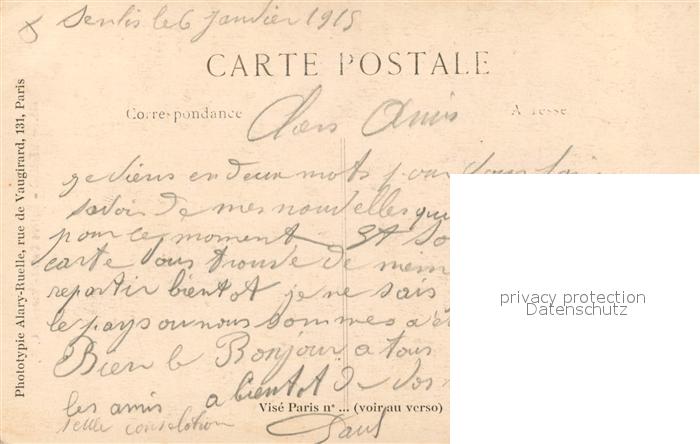 Senlis le 6 Janvier 1915
CARTE POSTALE
Correspondance
Adresse
Chers Amis
je viens en deux mots pour vous fai
savoir de mes nouvelles qui
pour ce moment et so
carte vous trouve de mem
repartir bientot je ne sais
le pays ou nous sommes a
Bien le Bonjour a tous
les amis a bientot de vos
Visé Paris nº ... (voir au verso)
Paul
Phototypie Alary-Ruelle, rue de Vaugirard, 131, Paris
privacy protection
Datenschutz